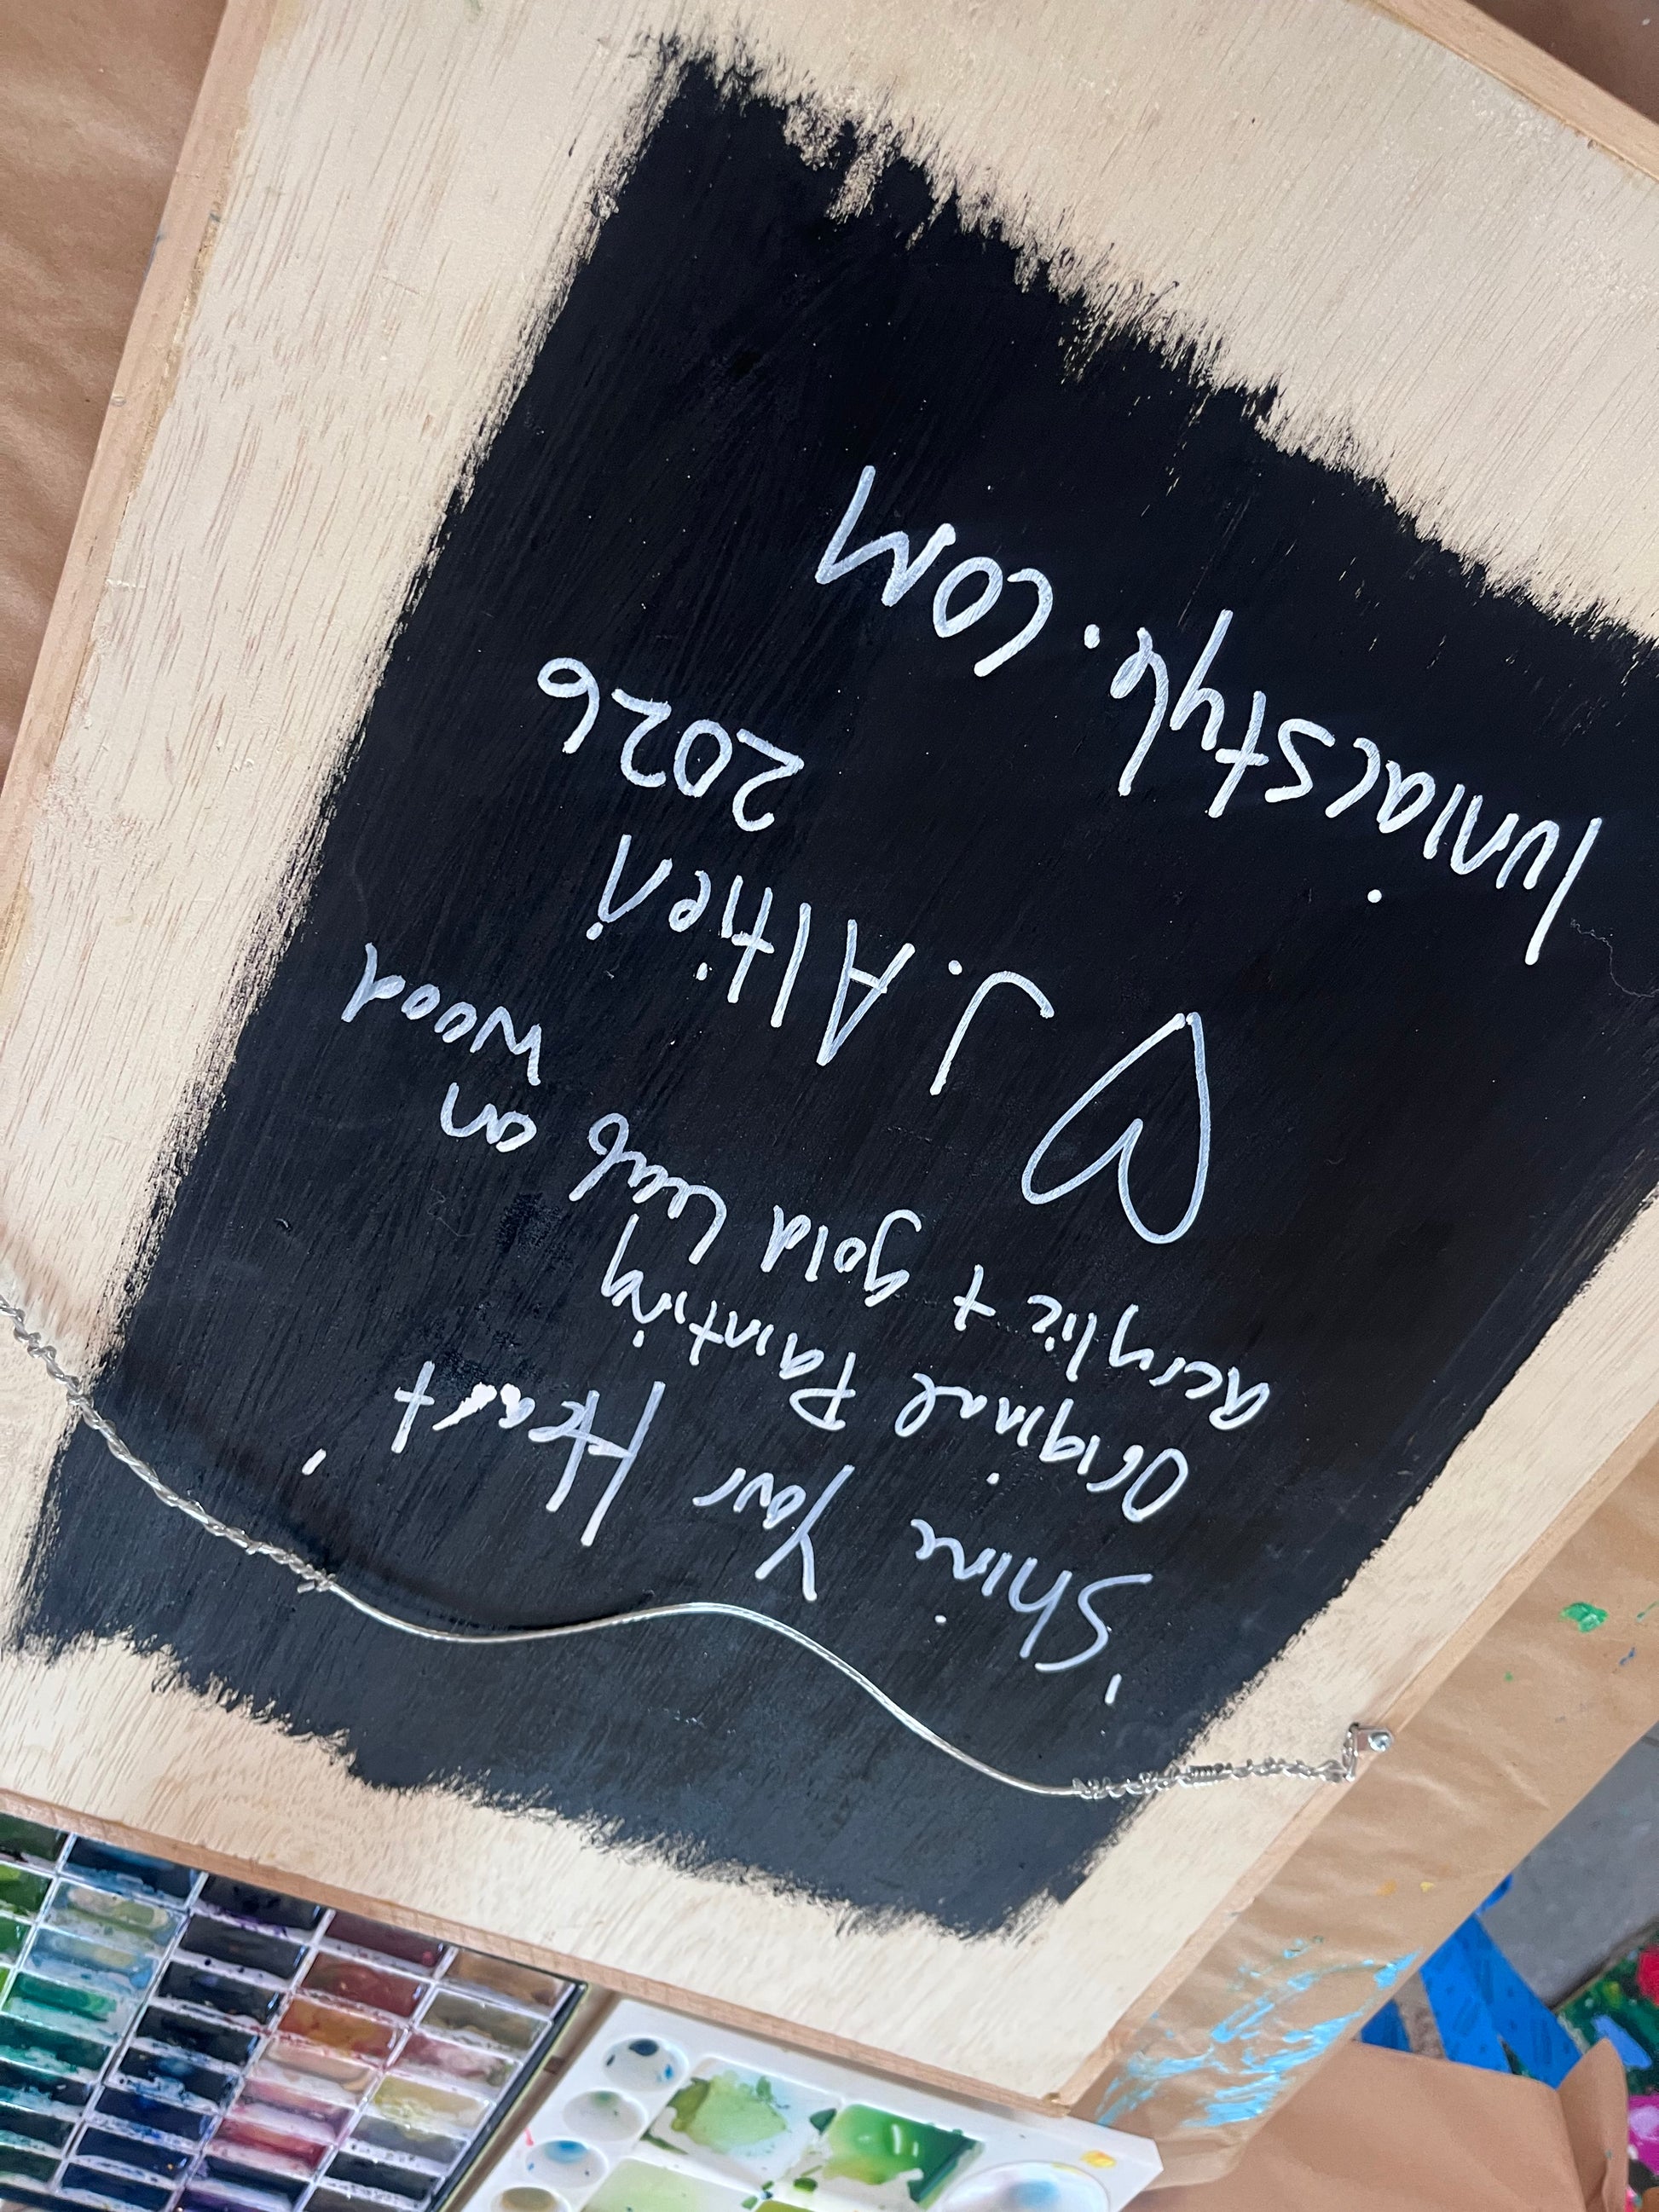 'Shine Your Heart'
Original Painting
acrylic + gold leaf on
wood
♡ J. Altieri
2026
luniacstyle.com